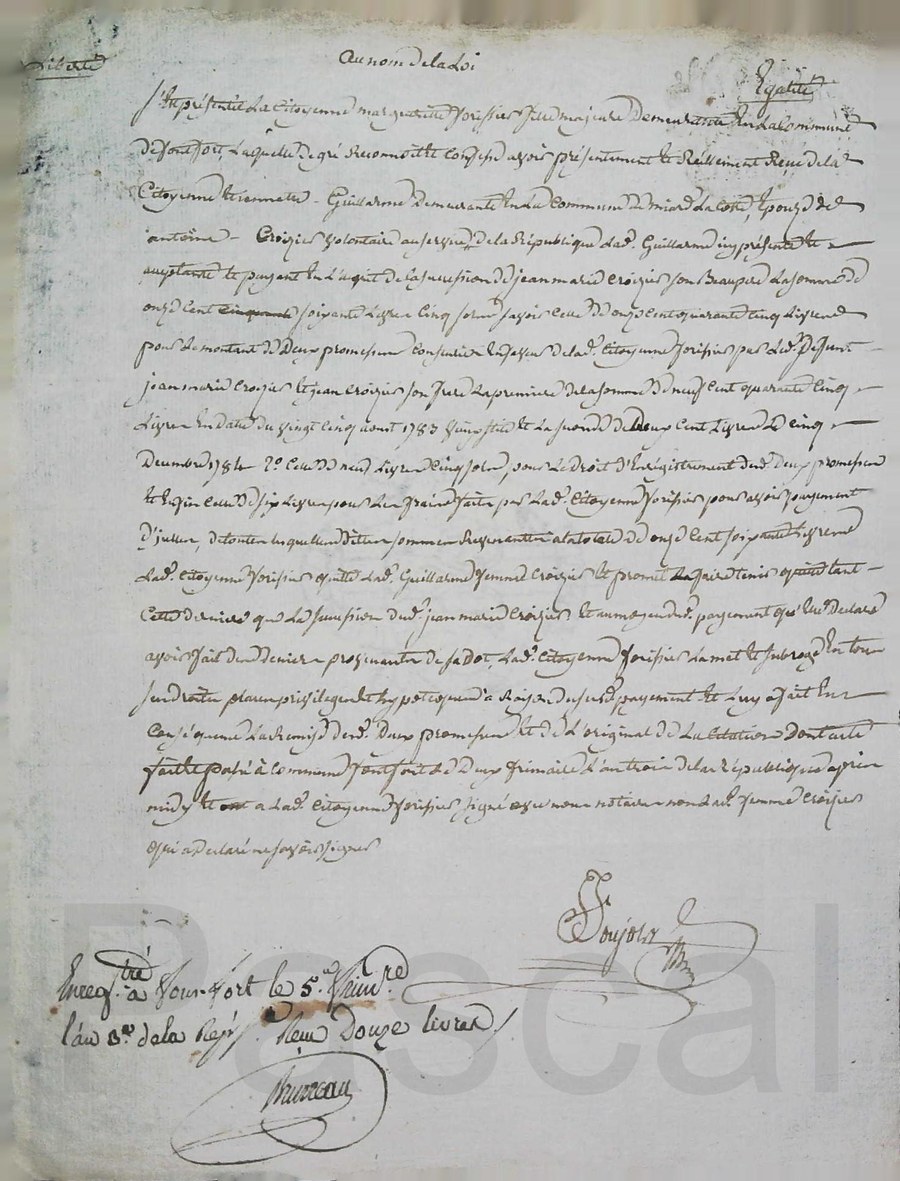 Au nom de la Loi
Liberté
Egalité
S'est présentée La Citoyenne marguerite Forissier fille majeure Demeurante En La Commune
de fontfort, Laquelle de gré Reconnoit et Confesse avoir présentement et Réellement Reçu de la
Citoyenne Etiennette Guillarme Demeurante En La Commune de miard La Cotte, Epouse de
antoine Croizier volontaire au service de la République Lad. Guillarme icy présente et
acceptante et payant En L'aquit de la succession de jean marie Croizier son Beaupere La somme de
onze Cent soixante Livres Cinq sols savoir Celle de onze Cent quarante Cinq Livres
pour Le montant de Deux promesses Consenties En faveur de lad. Citoyenne Forissier par Led. Defunt
jean marie Croizier et jean Croizier son frere La premiere de la somme de neuf Cent quarante Cinq
Livres En date du vingt Cinq aout 1783 et La seconde de Deux Cent Livres Le Cinq
Decembre 1784 2° Celle de neuf Livres Cinq sols, pour Le Droit d'Enregistrement desd. Deux promesses
et Enfin Celle de six Livres pour Les fraix faits par Lad. Citoyenne Forissier pour avoir payement
D'icelles, de toutes lesquelles dittes sommes Revenantes a la totale de onze Cent soixante Livres
Lad. Citoyenne Forissier quitte Lad. Guillarme femme Croizier et promet La faire tenir quitte tant
Cette derniere que La succession dud. jean marie Croizier Et au moyen dud. payement qu'Elle Declare
avoir fait des deniers provenants de sa Dot, Lad. Citoyenne Forissier La met et subroge En tous
ses droits places privileges et hypoteques a Raison dususd. payement et Luy a fait En
Conséquence La Remise desd. Deux promesses et de L'original de La Citation Dont acte
fait et passé à Commune fontfort Le Deux frimaire L'an trois de la République apres
midy et a Lad. Citoyenne Forissier signé avec nous notaire non Lad. femme Croizier
qui a Declaré ne savoir signer
Soujols
Enreg.tré à Fons-Fort le 5.e Frim.re
l'an 3.e de la Rép. Reçu Douze livres
Bruneau
Pascal